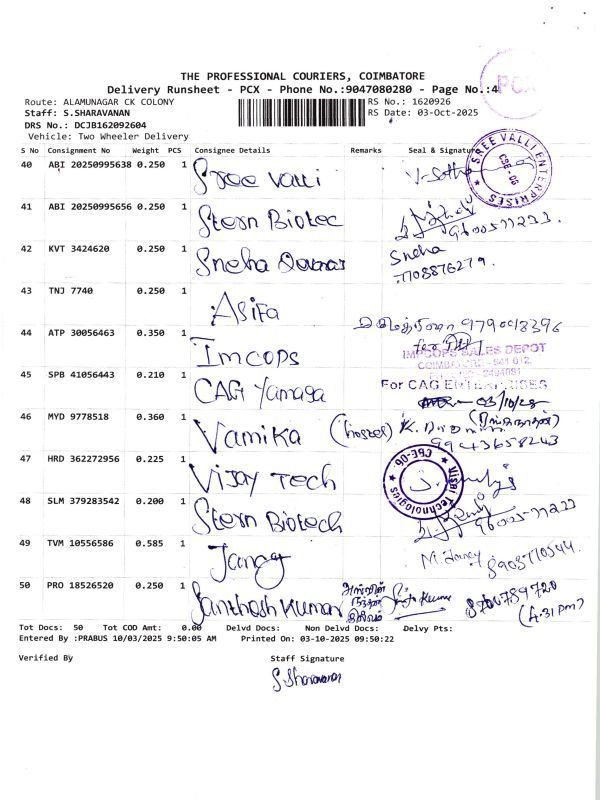 THE PROFESSIONAL COURIERS, COIMBATORE
Delivery Runsheet - PCX - Phone No.:9047080280 - Page No.:4
PCX
Route: ALAMUNAGAR CK COLONY
RS No.: 1620926
Staff: S.SHARAVANAN
RS Date: 03-Oct-2025
DRS No.: DCJB162092604
Vehicle: Two Wheeler Delivery
S No Consignment No Weight PCS Consignee Details Remarks Seal & Signature
40 ABI 20250995638 0.250 1 Sree Valli
SREE VALLI ENTERPRISES CBE - 06
41 ABI 20250995656 0.250 1 Stern Biotec
42 KVT 3424620 0.250 1 Sneha
Sneha
7708876279.
43 TNJ 7740 0.250 1 Asifa
44 ATP 30056463 0.350 1 Imcops
IMPCOPS SALES DEPOT
45 SPB 41056443 0.210 1 CAG Yamaga
For CAG ENTERPRISES
03/10/25
46 MYD 9778518 0.360 1 Vamika (hostel)
9943658243
47 HRD 362272956 0.225 1 Vijay Tech
CBE-06
48 SLM 379283542 0.200 1 Stern Biotech
49 TVM 10556586 0.585 1 Jancy
M. Jancy 8903770544.
50 PRO 18526520 0.250 1 Santhosh Kumar
(4.31 pm)
Tot Docs: 50 Tot COD Amt: 0.00 Delvd Docs: Non Delvd Docs: Delvy Pts:
Entered By :PRABUS 10/03/2025 9:50:05 AM Printed On: 03-10-2025 09:50:22
Verified By Staff Signature
S.Sharavanan